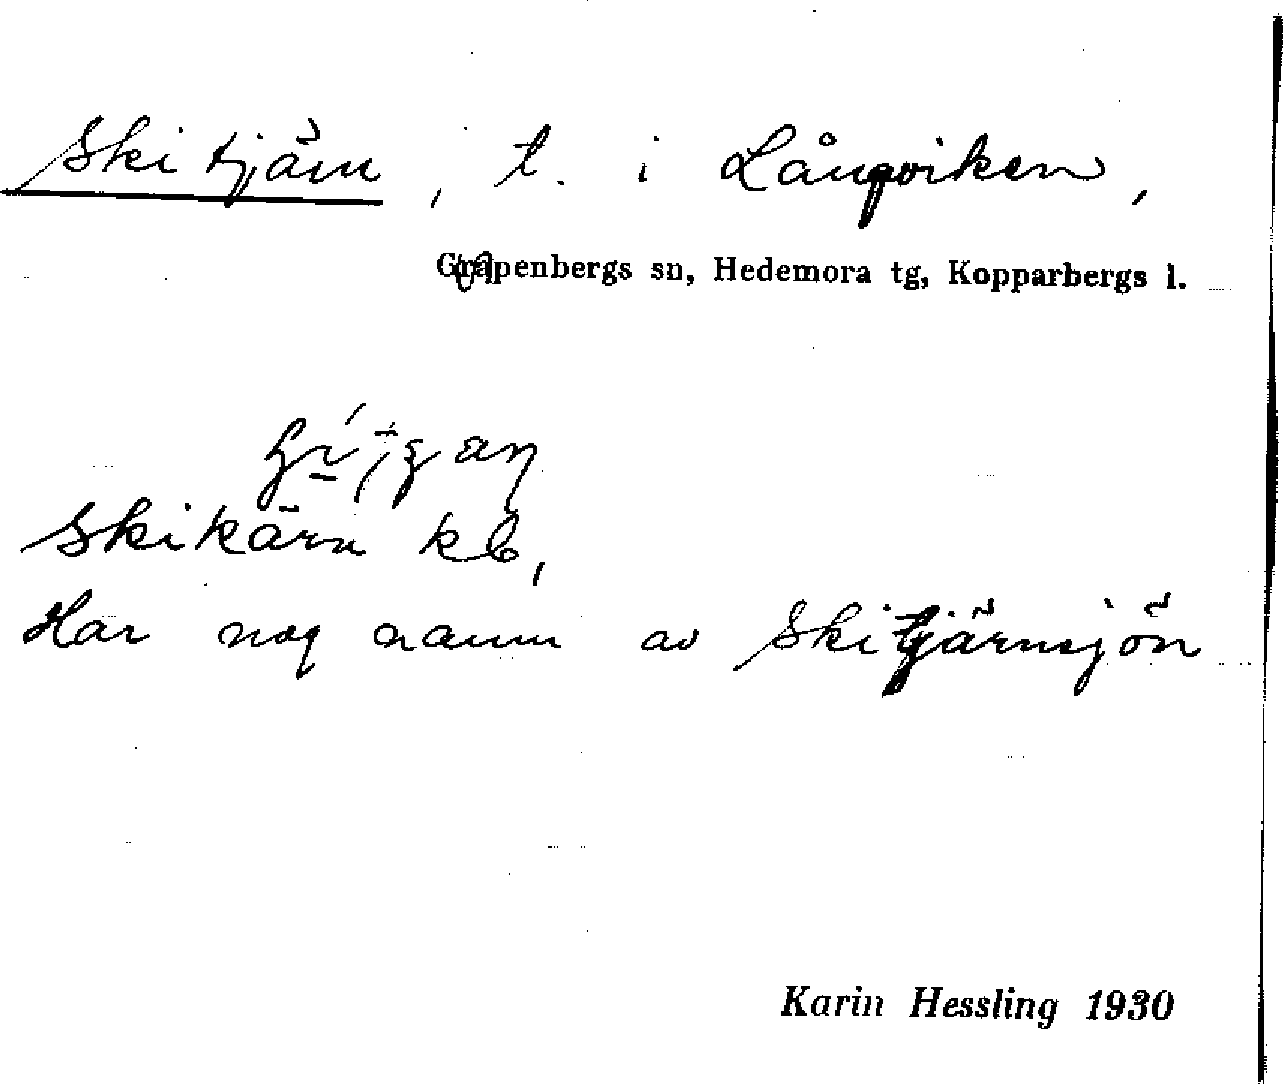 Skitjärn, t. i Långviken,
Garpenbergs sn, Hedemora tg, Kopparbergs l.
Skikärn kb,
Har nog namn av Skitjärnsjön
Karin Hessling 1930